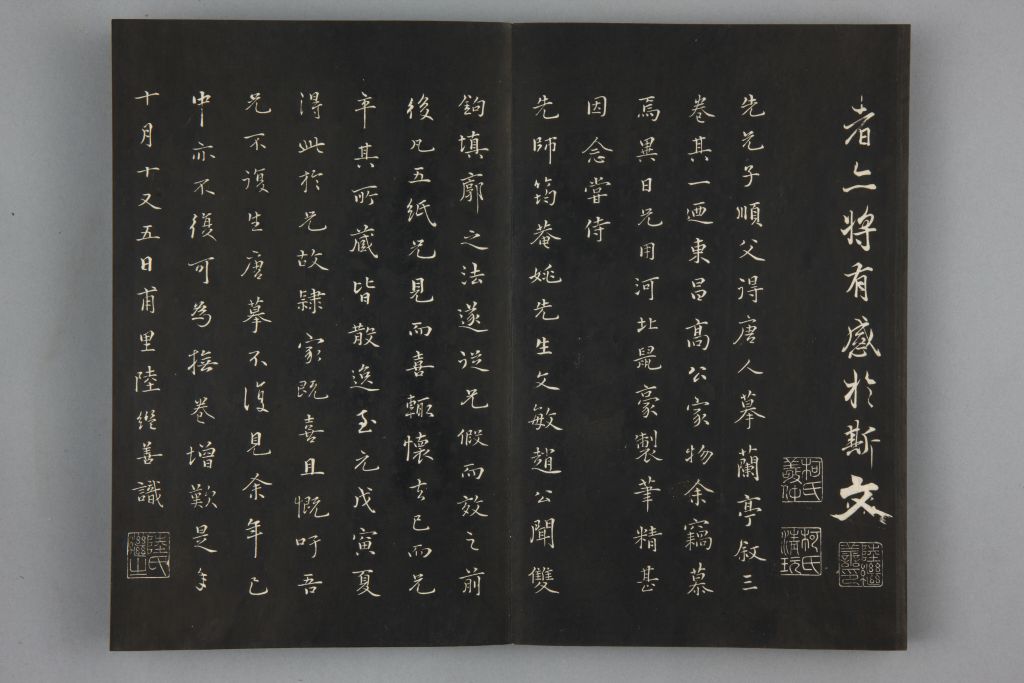 者亦将有感於斯文
先兄子順父得唐人摹蘭亭叙三
卷其一迺東昌高公家物余竊慕
焉異日兄用河北鼠豪製筆精甚
因念嘗侍
先師筠菴姚先生文敏趙公聞雙
鉤填廓之法遂従兄假而效之前
後凡五紙兄見而喜輒懷去已而兄
卒其所蔵皆散逸至元戊寅夏
得此於兄故隷家既喜且慨吁吾
兄不復生唐摹不復見余年已
中亦不復可為撫卷增歎是年
十月十又五日甫里陸継善識
柯氏敬仲
柯氏清玩